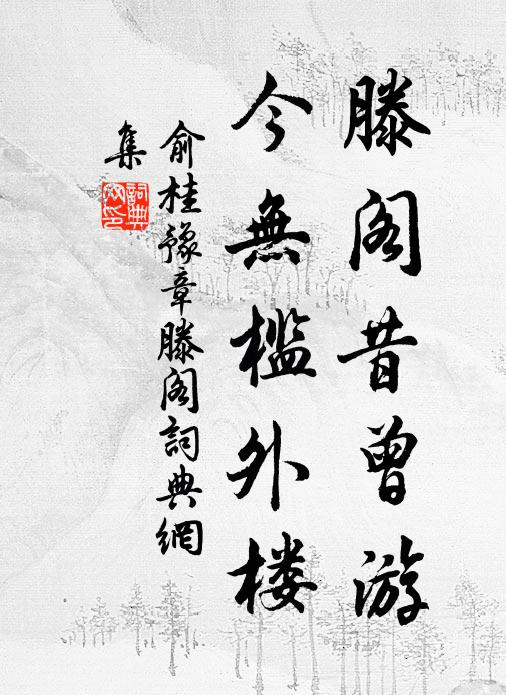 滕阁昔曾游
今無檻外楼
俞桂豫章滕阁詞典網
集
詞典網印